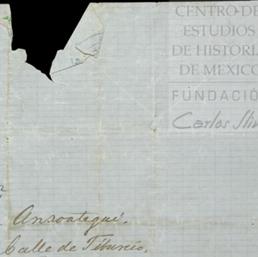 CENTRO DE
ESTUDIOS
DE HISTORIA
DE MEXICO
FUNDACIÓ
Carlos Sli
Ansoategui.
Calle de Tiburcio.